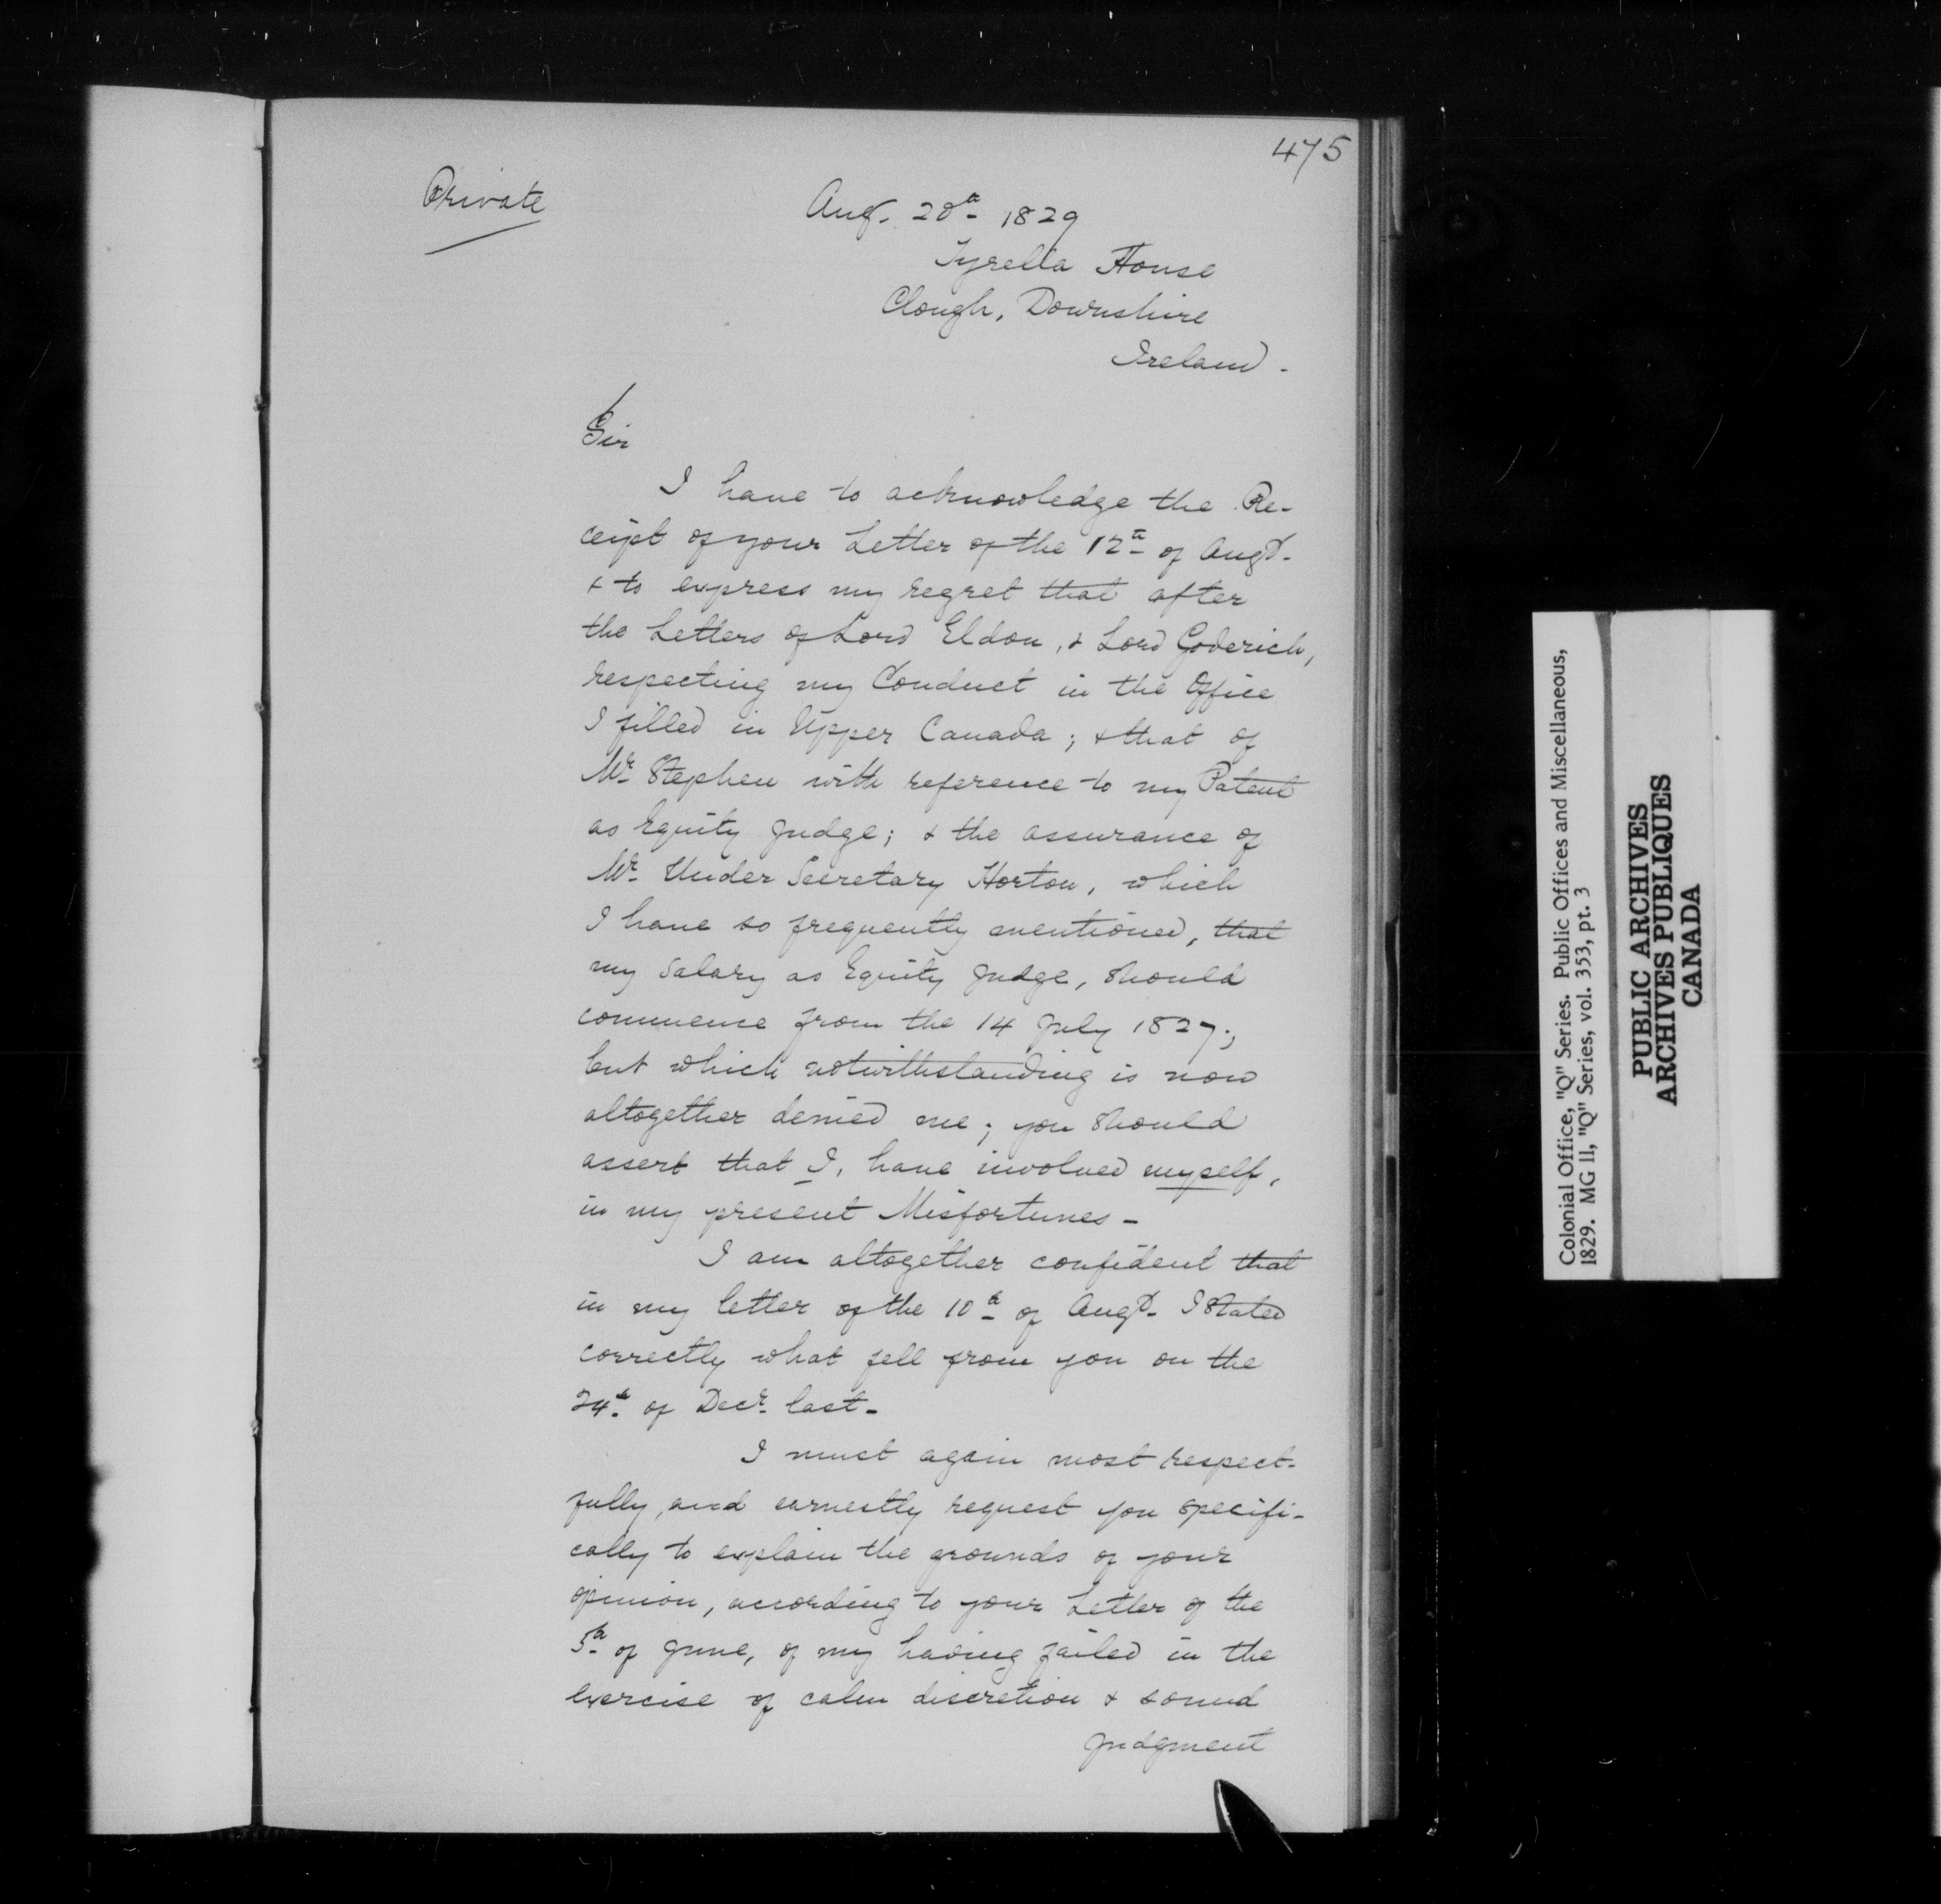 475
Private
Aug. 28th 1829
Tyrella House
Clough, Downshire
Ireland -
Sir
I have to acknowledge the Re-
ceipt of your Letter of the 12th of Augt-
& to express my regret that after
the Letters of Lord Eldon, & Lord Goderich,
respecting my Conduct in the Office
I filled in Upper Canada; & that of
Mr Stephen with reference to my Patent
as Equity Judge; & the assurance of
Mr Under Secretary Horton, which
I have so frequently mentioned, that
my Salary as Equity Judge, should
commence from the 14 July 1827;
but which notwithstanding is now
altogether denied me; you should
assert that I, have involved myself,
in my present Misfortunes -
I am altogether confident that
in my letter of the 10th of Augt- I stated
correctly what fell from you on the
24th of Decr last -
I must again most respect-
fully, and earnestly request you specifi-
cally to explain the grounds of your
opinion, according to your Letter of the
5th of June, of my having failed in the
exercise of calm discretion & sound
Judgment
Colonial Office, "Q" Series. Public Offices and Miscellaneous,
1829. MG 11, "Q" Series, vol. 353, pt. 3
PUBLIC ARCHIVES
ARCHIVES PUBLIQUES
CANADA